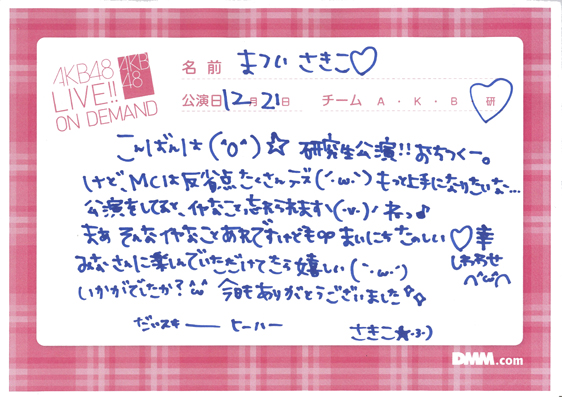 AKB48
LIVE!!
ON DEMAND
AKB
48
名前 まつい さきこ♡
公演日 12月21日 チーム A・K・B 研
こんばんは(^o^)☆ 研究生公演!! おちつくー。
けど、MCは反省点たくさんデス(´・ω・`)もっと上手になりたいな…
公演をしてると、イヤなこと忘れられます\(・v・)ノ ねっ♪
まぁ そんなイヤなことあれですけども まいにちたのしい♡幸
しあわせ
みなさんに楽しんでいただけてたら嬉しい(´・ω・`)
いかがでしたか?^ω^ 今日もありがとうございました
だいスキ── ヒーハー さきこ★・3・)
DMM.com